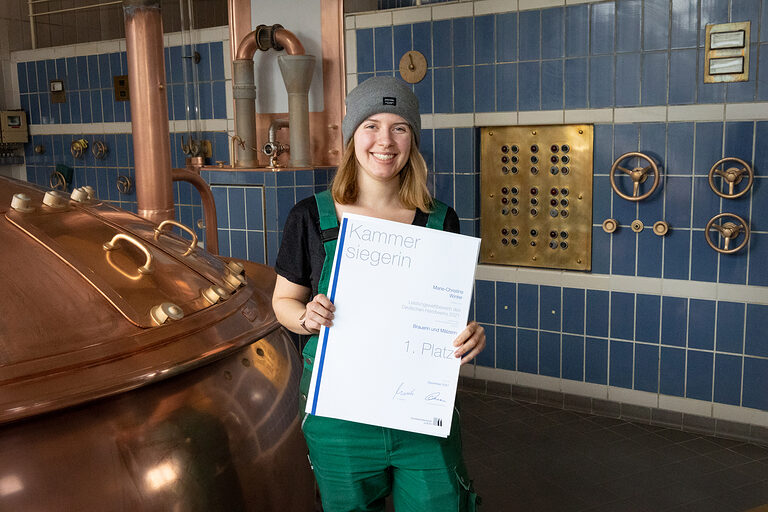 Kammer
siegerin
Marie-Christine
Winkel
Leistungswettbewerb des
Deutschen Handwerks 2021
Brauerin und Mälzerin
1. Platz